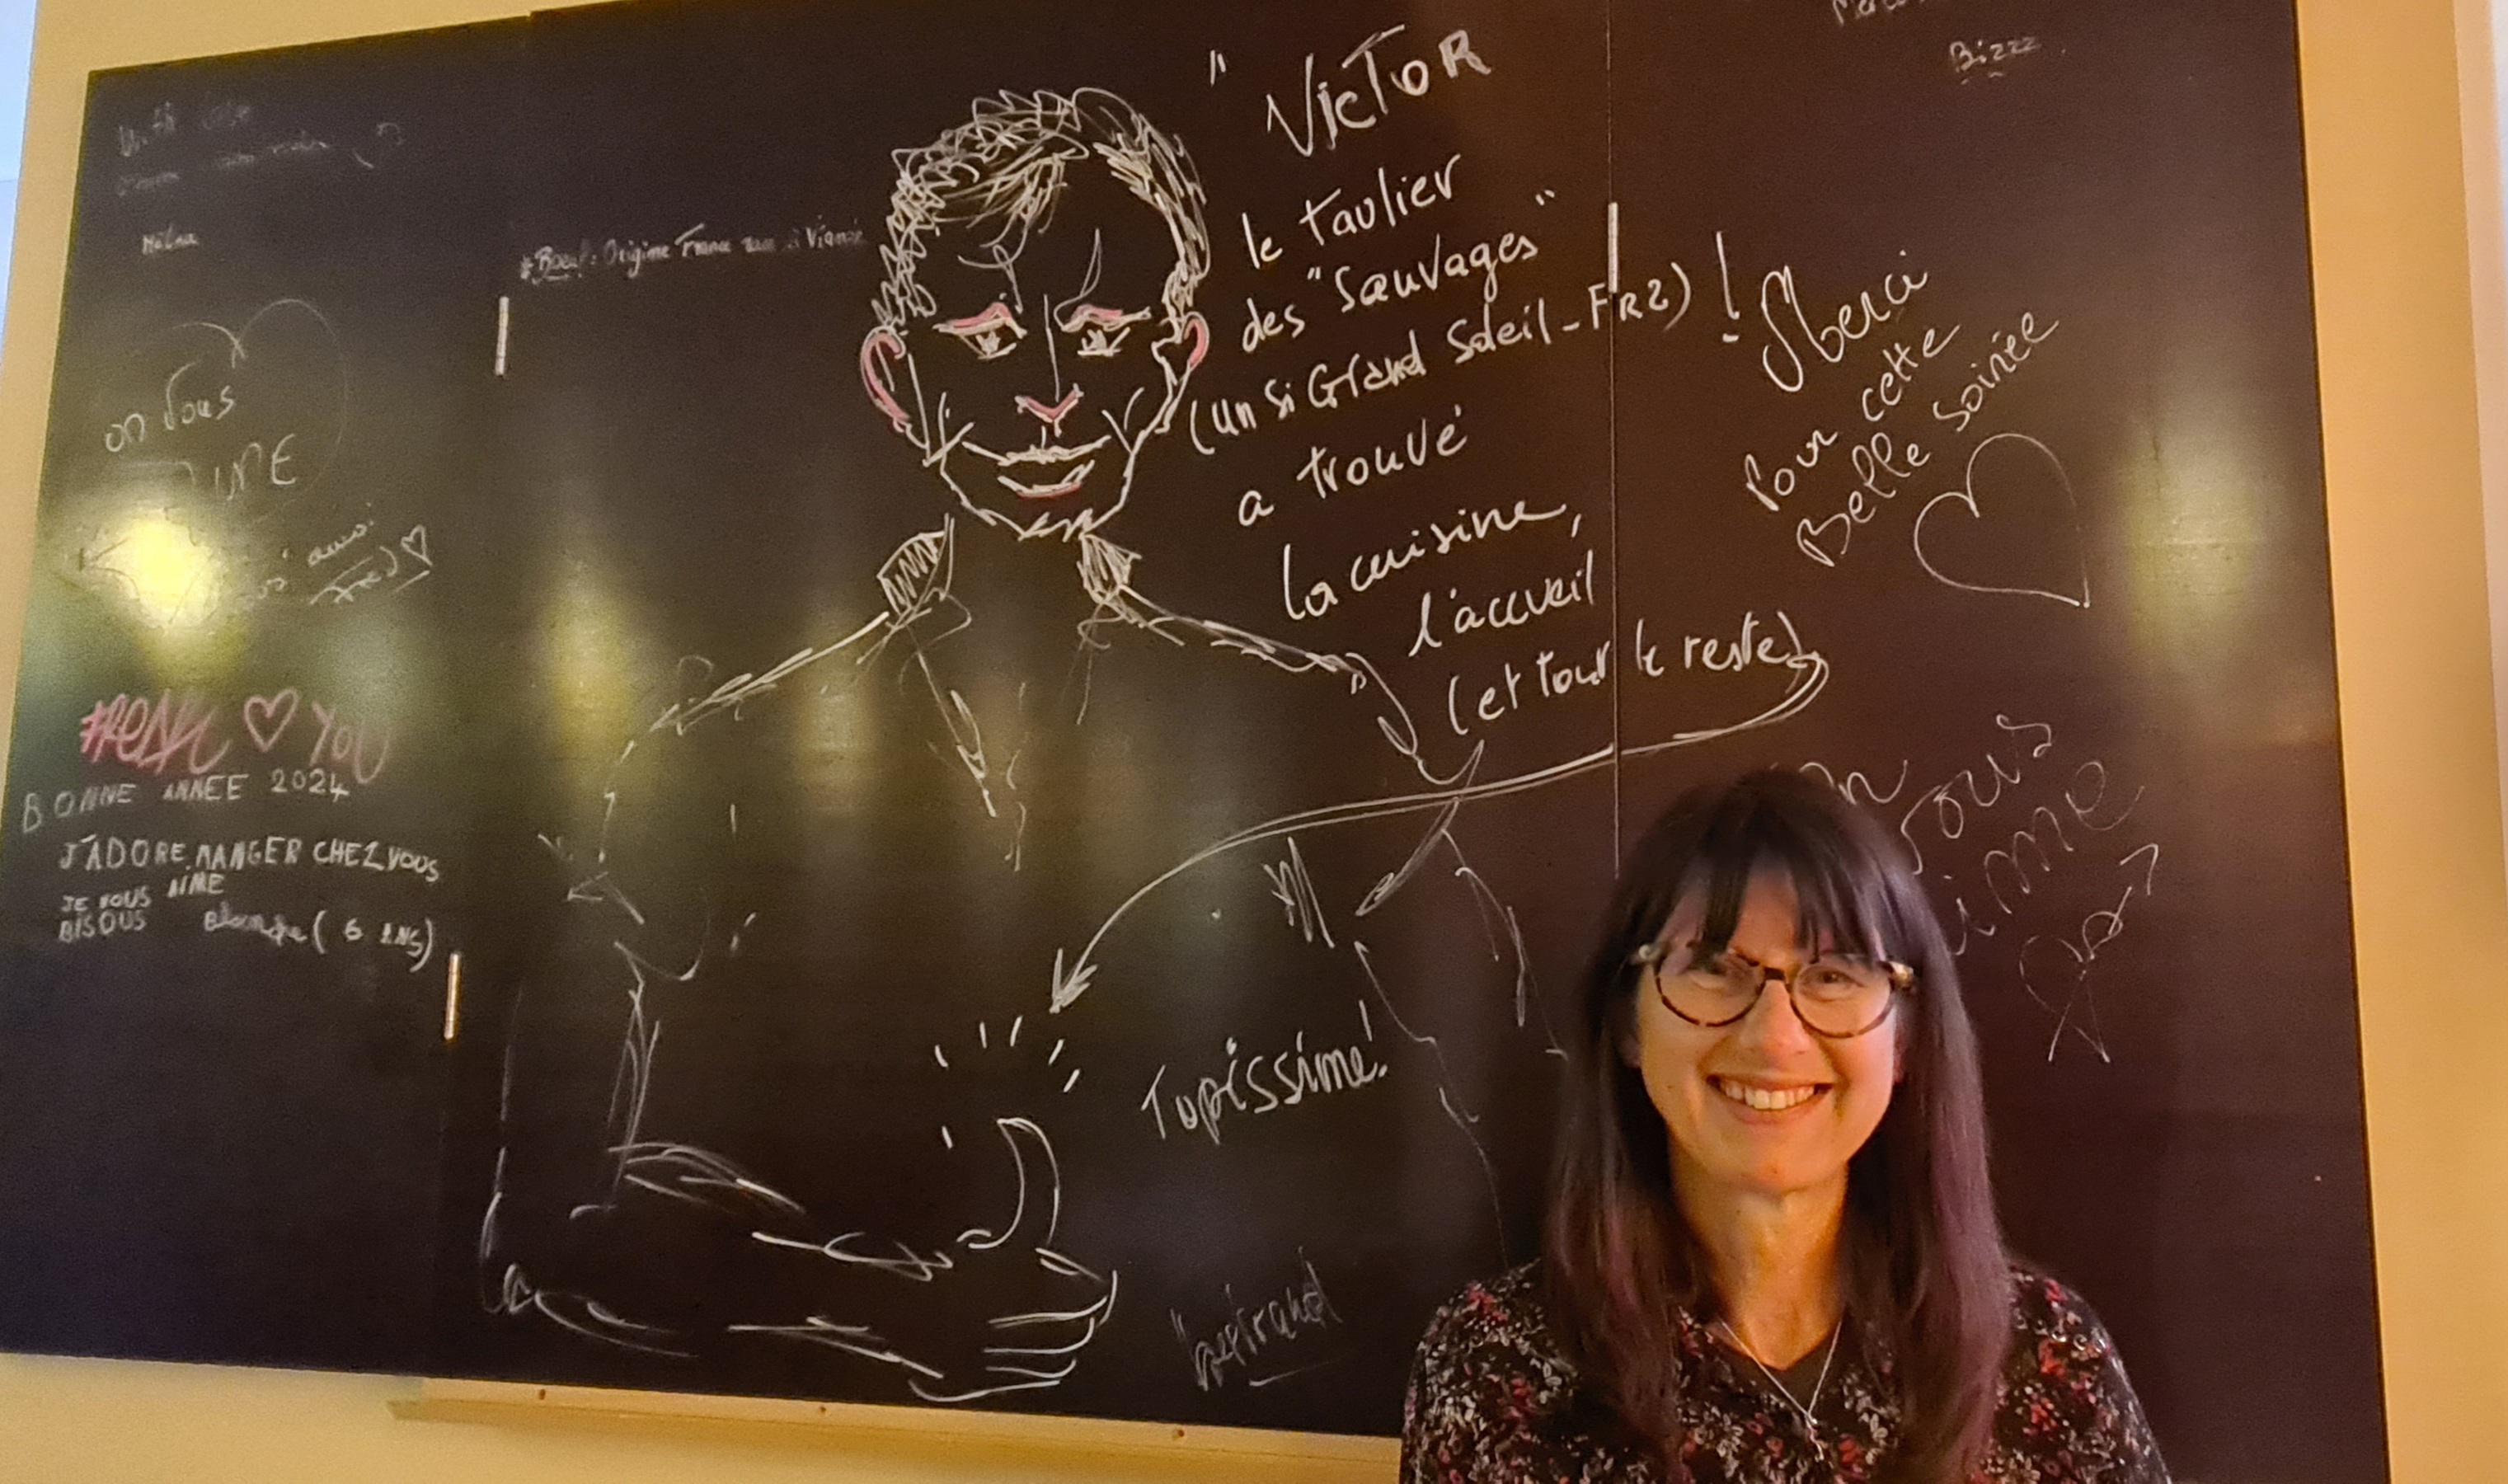 Bizzz
" VICTOR
le taulier
des "Sauvages"
(un Si Grand Soleil - FR2) !
a trouvé
la cuisine,
l'accueil
(et tout le reste)
Topissime!
bertrand
Merci
Pour cette
Belle Soirée
on vous
aime
* Boeuf: Origine France
on vous
aussi
YOU
BONNE ANNEE 2024
J'ADORE MANGER CHEZ VOUS
JE VOUS AIME
BISOUS Blanche (6 ANS)